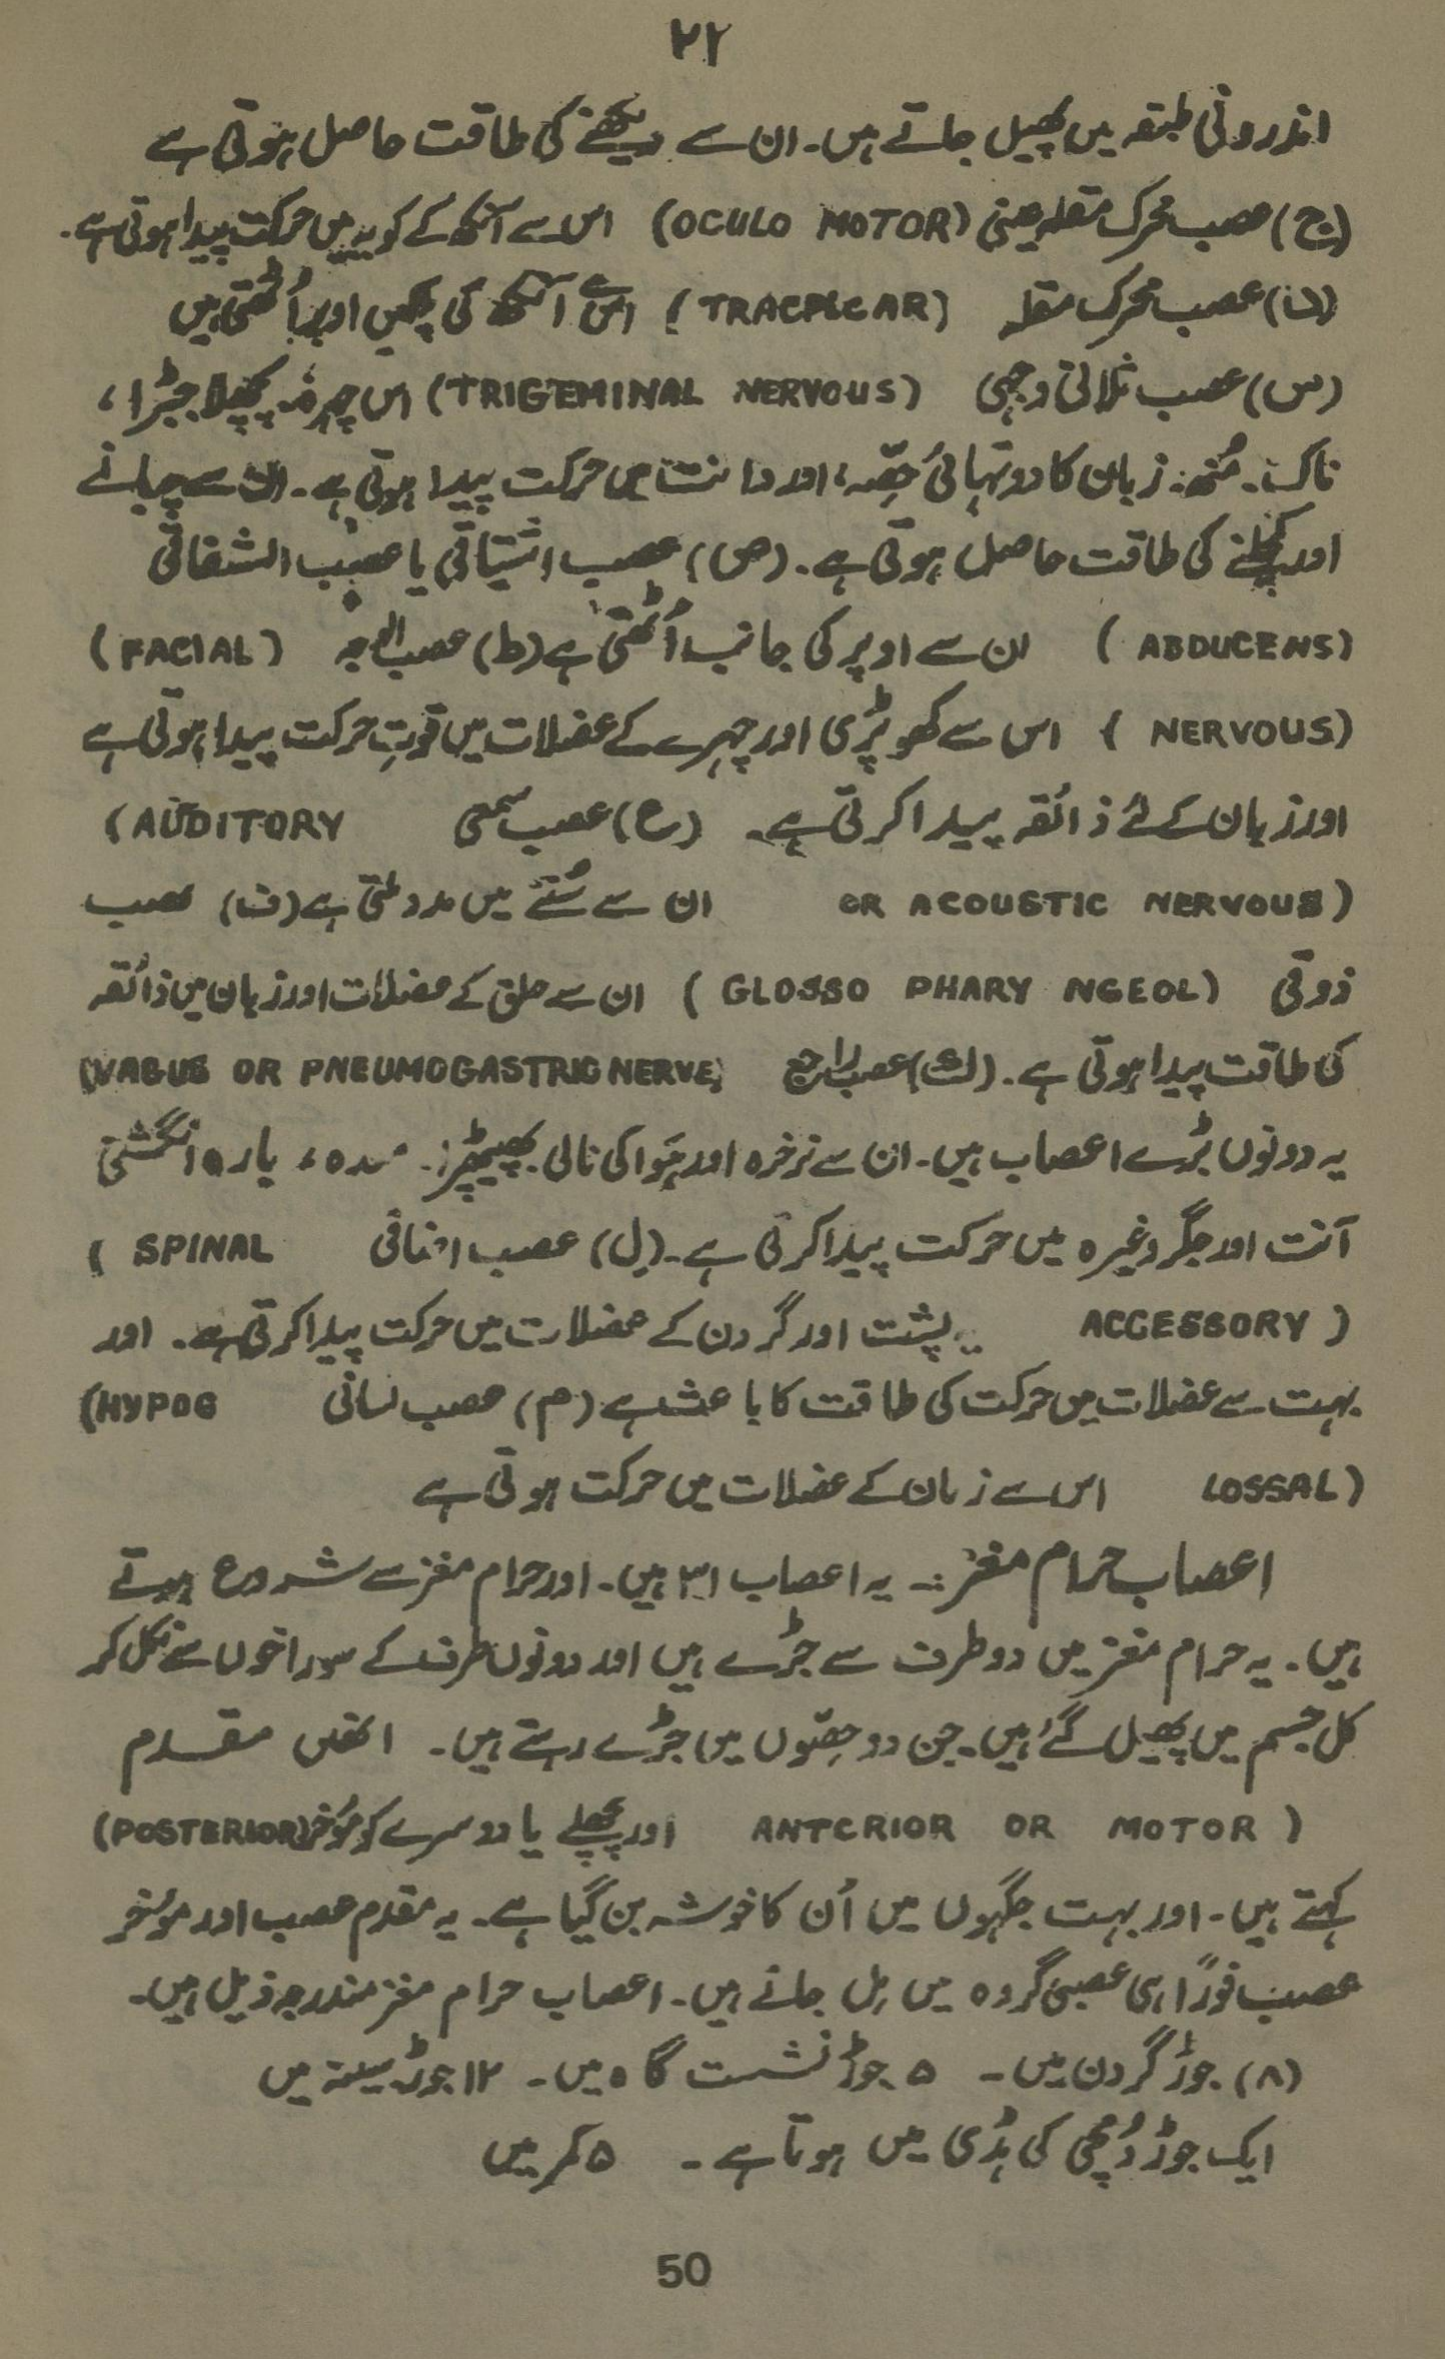 ۲۲
اندرونی طبقہ میں پھیل جاتے ہیں۔ ان سے دیکھنے کی طاقت حاصل ہوتی ہے
(ج) عصب محرک مقلہ عینی (OCULO MOTOR) اس سے آنکھ کے کویہ میں حرکت پیدا ہوتی ہے۔
عصب محرک مقلہ (TRACPLCAR) اس سے آنکھ کی پلکیں اوپر اُٹھتی ہیں
(س) عصب ثلاثی وجہی (TRIGEMINAL NERVOUS) اس چہرہ پچھلا جبڑا،
ناک۔ مُنھ۔ زبان کا دو تہائی حِصّہ، اور دانت میں حرکت پیدا ہوتی ہے۔ ان سے چبانے
اور کچلنے کی طاقت حاصل ہوتی ہے۔ (ص) عصب اشتیاقی یا عصب الشقاقی
(ABDUCENS) ان سے اوپر کی جانب اُٹھتی ہے (ط) عصب الوجہ (FACIAL)
(NERVOUS) اس سے کھوپڑی اور چہرے کے عضلات میں قوتِ حرکت پیدا ہوتی ہے
اور زبان کے لئے ذائقہ پیدا کرتی ہے۔ (ع) عصب سمعی (AUDITORY
OR ACOUSTIC NERVOUS) ان سے سُننے میں مدد ملتی ہے (ف) عصب
ذوقی (GLOSSO PHARY NGEOL) ان سے حلق کے عضلات اور زبان میں ذائقہ
کی طاقت پیدا ہوتی ہے۔ (ک) عصب راجع (VAGUS OR PNEUMOGASTRIC NERVE)
یہ دونوں بڑے اعصاب ہیں۔ ان سے نرخرہ اور ہَوا کی نالی پھیپھڑا۔ معدہ، بارہ انگشتی
آنت اور جگر وغیرہ میں حرکت پیدا کرتی ہے۔ (ل) عصب اضافی (SPINAL
ACCESSORY) یہ پشت اور گردن کے عضلات میں حرکت پیدا کرتی ہے۔ اور
بہت سے عضلات میں حرکت کی طاقت کا باعث ہے (م) عصب لسانی (HYPOG
LOSSAL) اس سے زبان کے عضلات میں حرکت ہوتی ہے
اعصاب حرام مغز:۔ یہ اعصاب ۳۱ ہیں۔ اور حرام مغز سے شروع ہوتے
ہیں۔ یہ حرام مغز میں دو طرف سے جڑے ہیں اور دونوں طرف کے سوراخوں سے نکل کر
کل جسم میں پھیل گئے ہیں۔ جن دو حِصّوں میں جڑے رہتے ہیں۔ انھیں مقدم
(ANTERIOR OR MOTOR اور پچھلے یا دوسرے کو مُوخر (POSTERIOR)
کہتے ہیں۔ اور بہت جگہوں میں اُن کا خوشہ بن گیا ہے۔ یہ مقدم عصب اور موُخر
عصب فورًا ہی عصبی گروہ میں مِل جاتے ہیں۔ اعصاب حرام مغز مندرجہ ذیل ہیں۔
(۸) جوڑ گردن میں۔ ۵ جوڑ نشست گاہ میں۔ ۱۲ جوڑ سینہ میں
ایک جوڑ دُمچی کی ہڈی میں ہوتا ہے۔ ۵ کمر میں
50